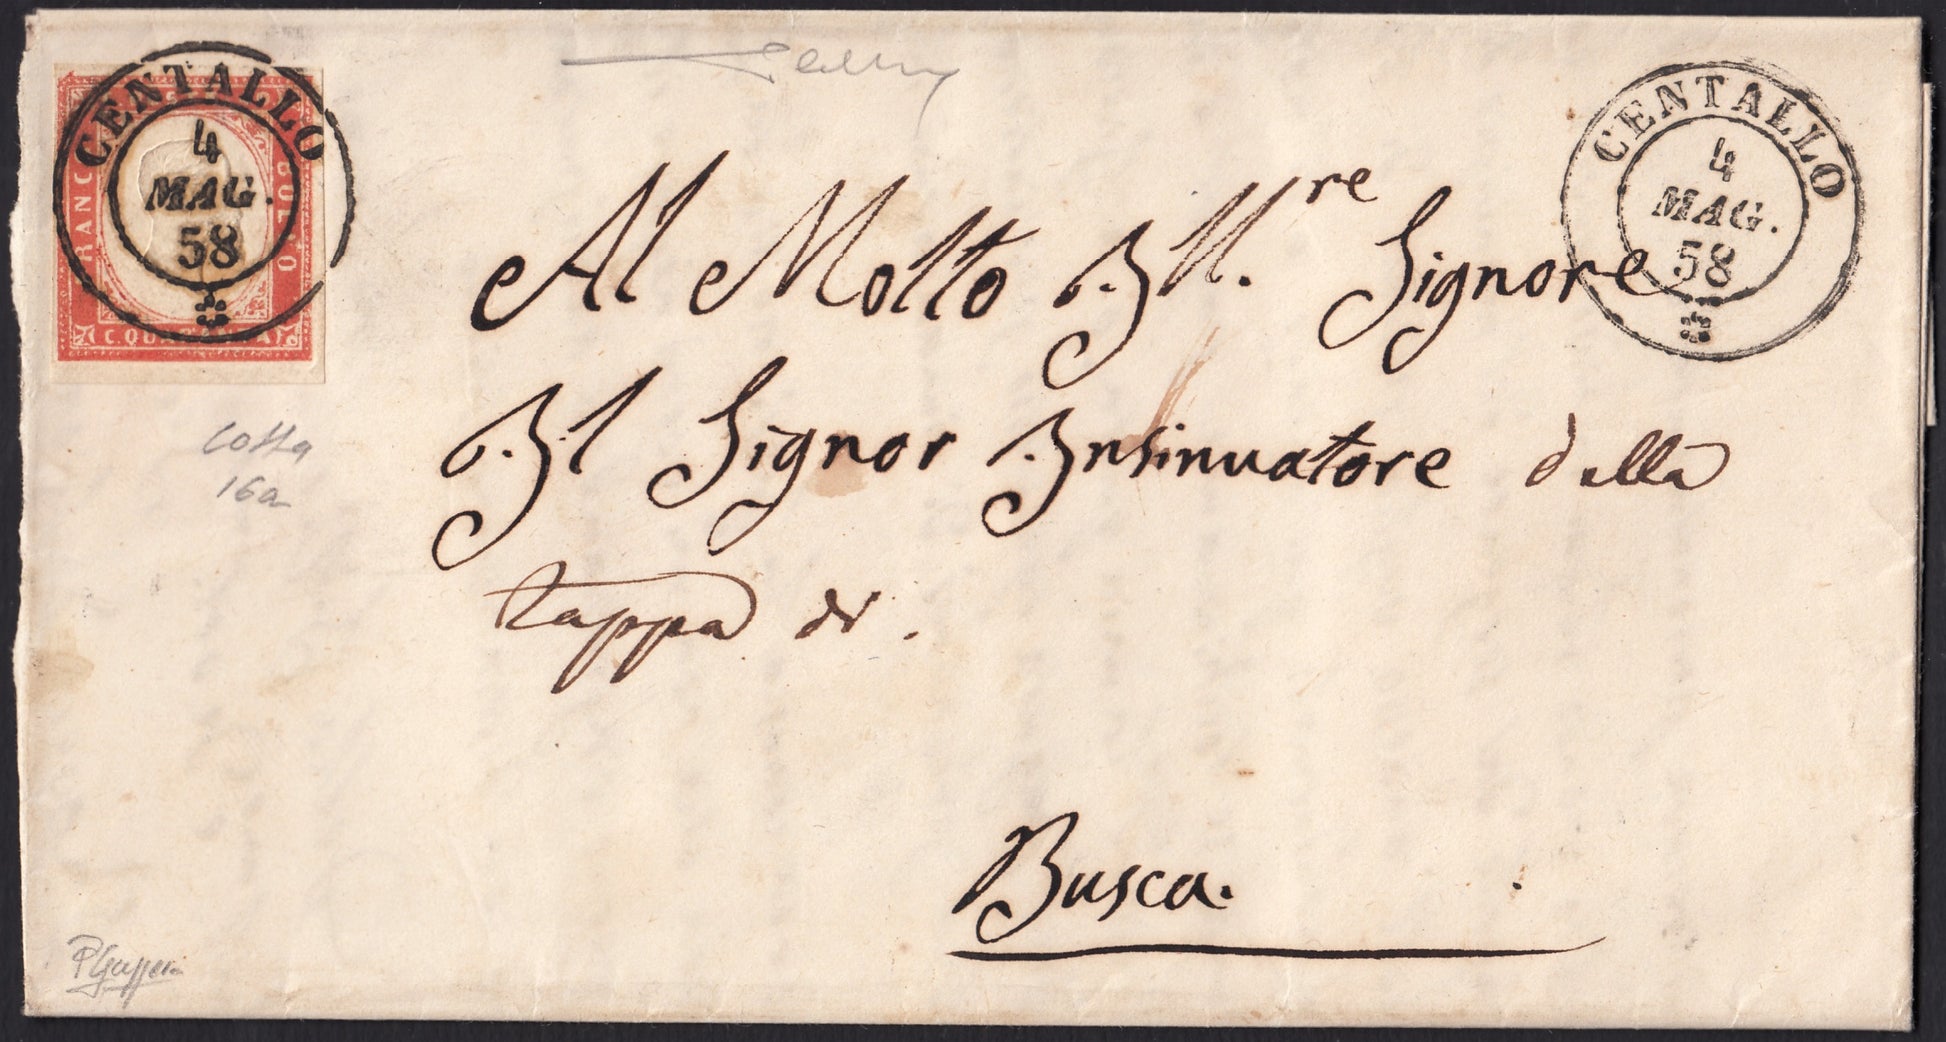 CENTALLO
4
MAG.
58
FRANCO BOLLO
C. QUARANTA
CENTALLO
4
MAG.
58
Al Molto Ill.re Signore
Il Signor Insinuatore della
tappa di.
Busca.
16a